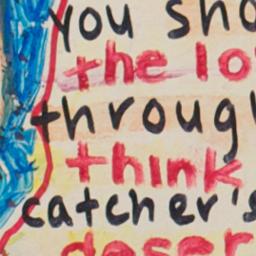 you sho
the lo
throug
think
catcher's
deser